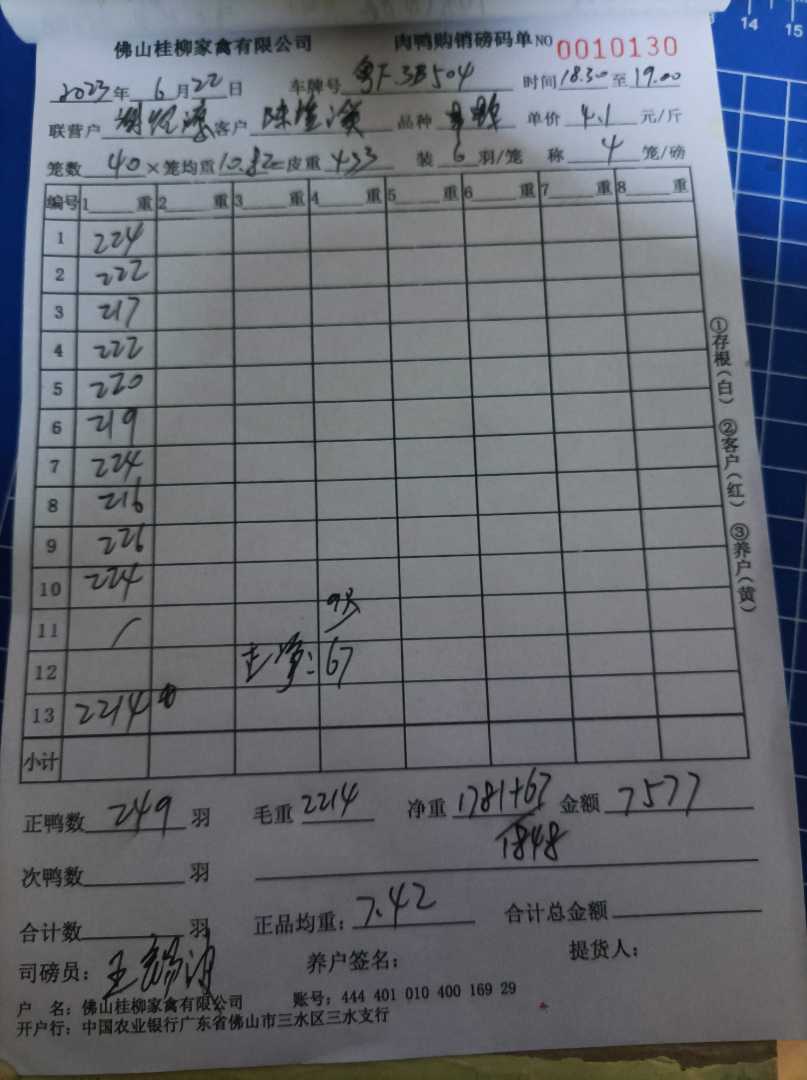 14 15
佛山桂柳家禽有限公司 肉鸭购销磅码单 NO 0010130
2023年 6 月 22 日 车牌号 粤F.3B504 时间 18.30 至 19.00
联营户 客户 品种 单价 4.1 元/斤
笼数 40 × 笼均重 10.82 = 皮重 433 装 6 羽/笼 称 4 笼/磅
编号 1 重 2 重 3 重 4 重 5 重 6 重 7 重 8 重
1 224
2 222
3 217
4 222
5 220
6 219
7 224
8 216
9 226
10 224
11 /
12 : 67
13 2214
小计
正鸭数 249 羽 毛重 2214 净重 1781+67 金额 7577
1848
次鸭数 羽
合计数 羽 正品均重: 7.42 合计总金额
司磅员: 王 养户签名: 提货人:
户 名: 佛山桂柳家禽有限公司 账号: 444 401 010 400 169 29
开户行: 中国农业银行广东省佛山市三水区三水支行
①存根(白) ②客户(红) ③养户(黄)